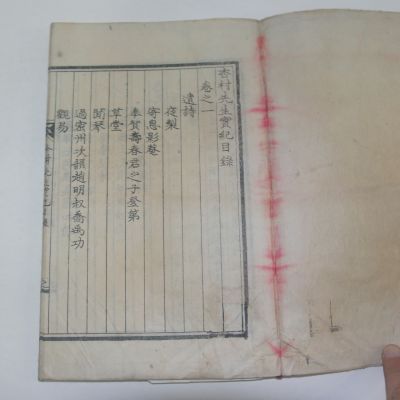 杏村先生實紀目錄
卷之一
遺詩
夜梨
寄息影菴
奉賀壽春君之子登第
草堂
聞琴
過密州次韻趙明叔喬禹功
觀易